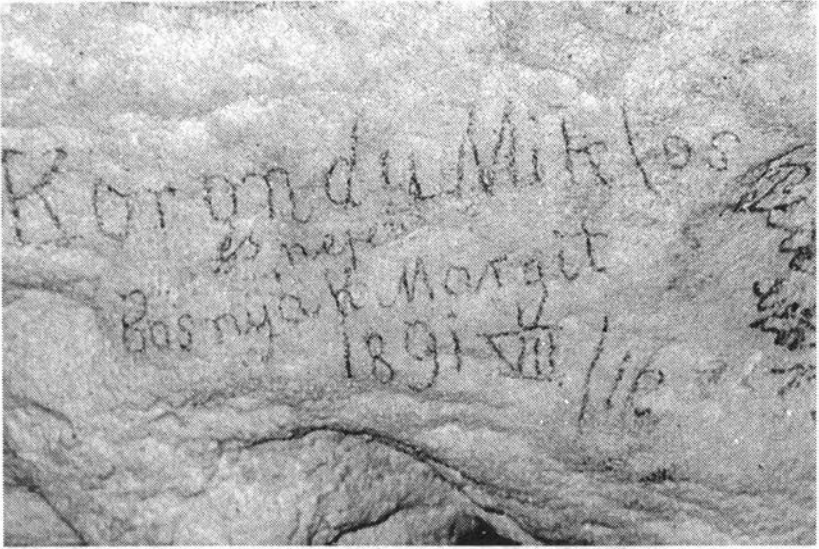 Korondu Miklos
es neje
Bosnyak Margit
1891 VII/16